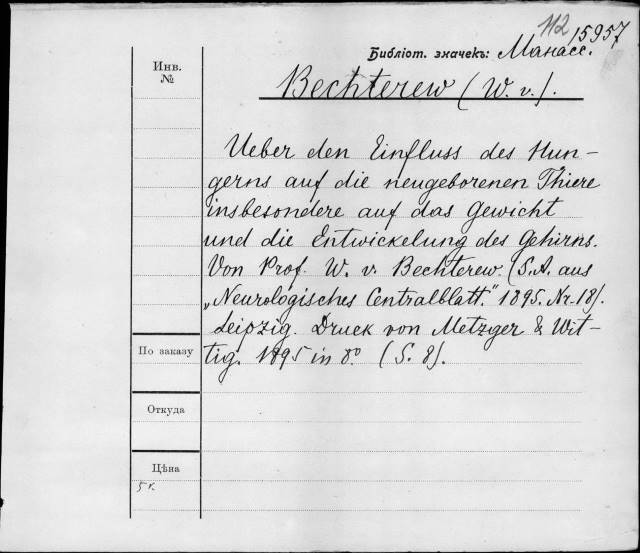 112 15957
Библіот. значекъ: Манасс.
Инв.
№
Bechterew (W. v.).
Ueber den Einfluss des Hun-
gerns auf die neugeborenen Thiere
insbesondere auf das Gewicht
und die Entwickelung des Gehirns.
Von Prof. W. v. Bechterew. (S.A. aus
„Neurologisches Centralblatt." 1895. Nr. 18).
Leipzig. Druck von Metzger & Wit-
tig. 1895 in 8º. (S. 8).
По заказу
Откуда
Цѣна
5 к.